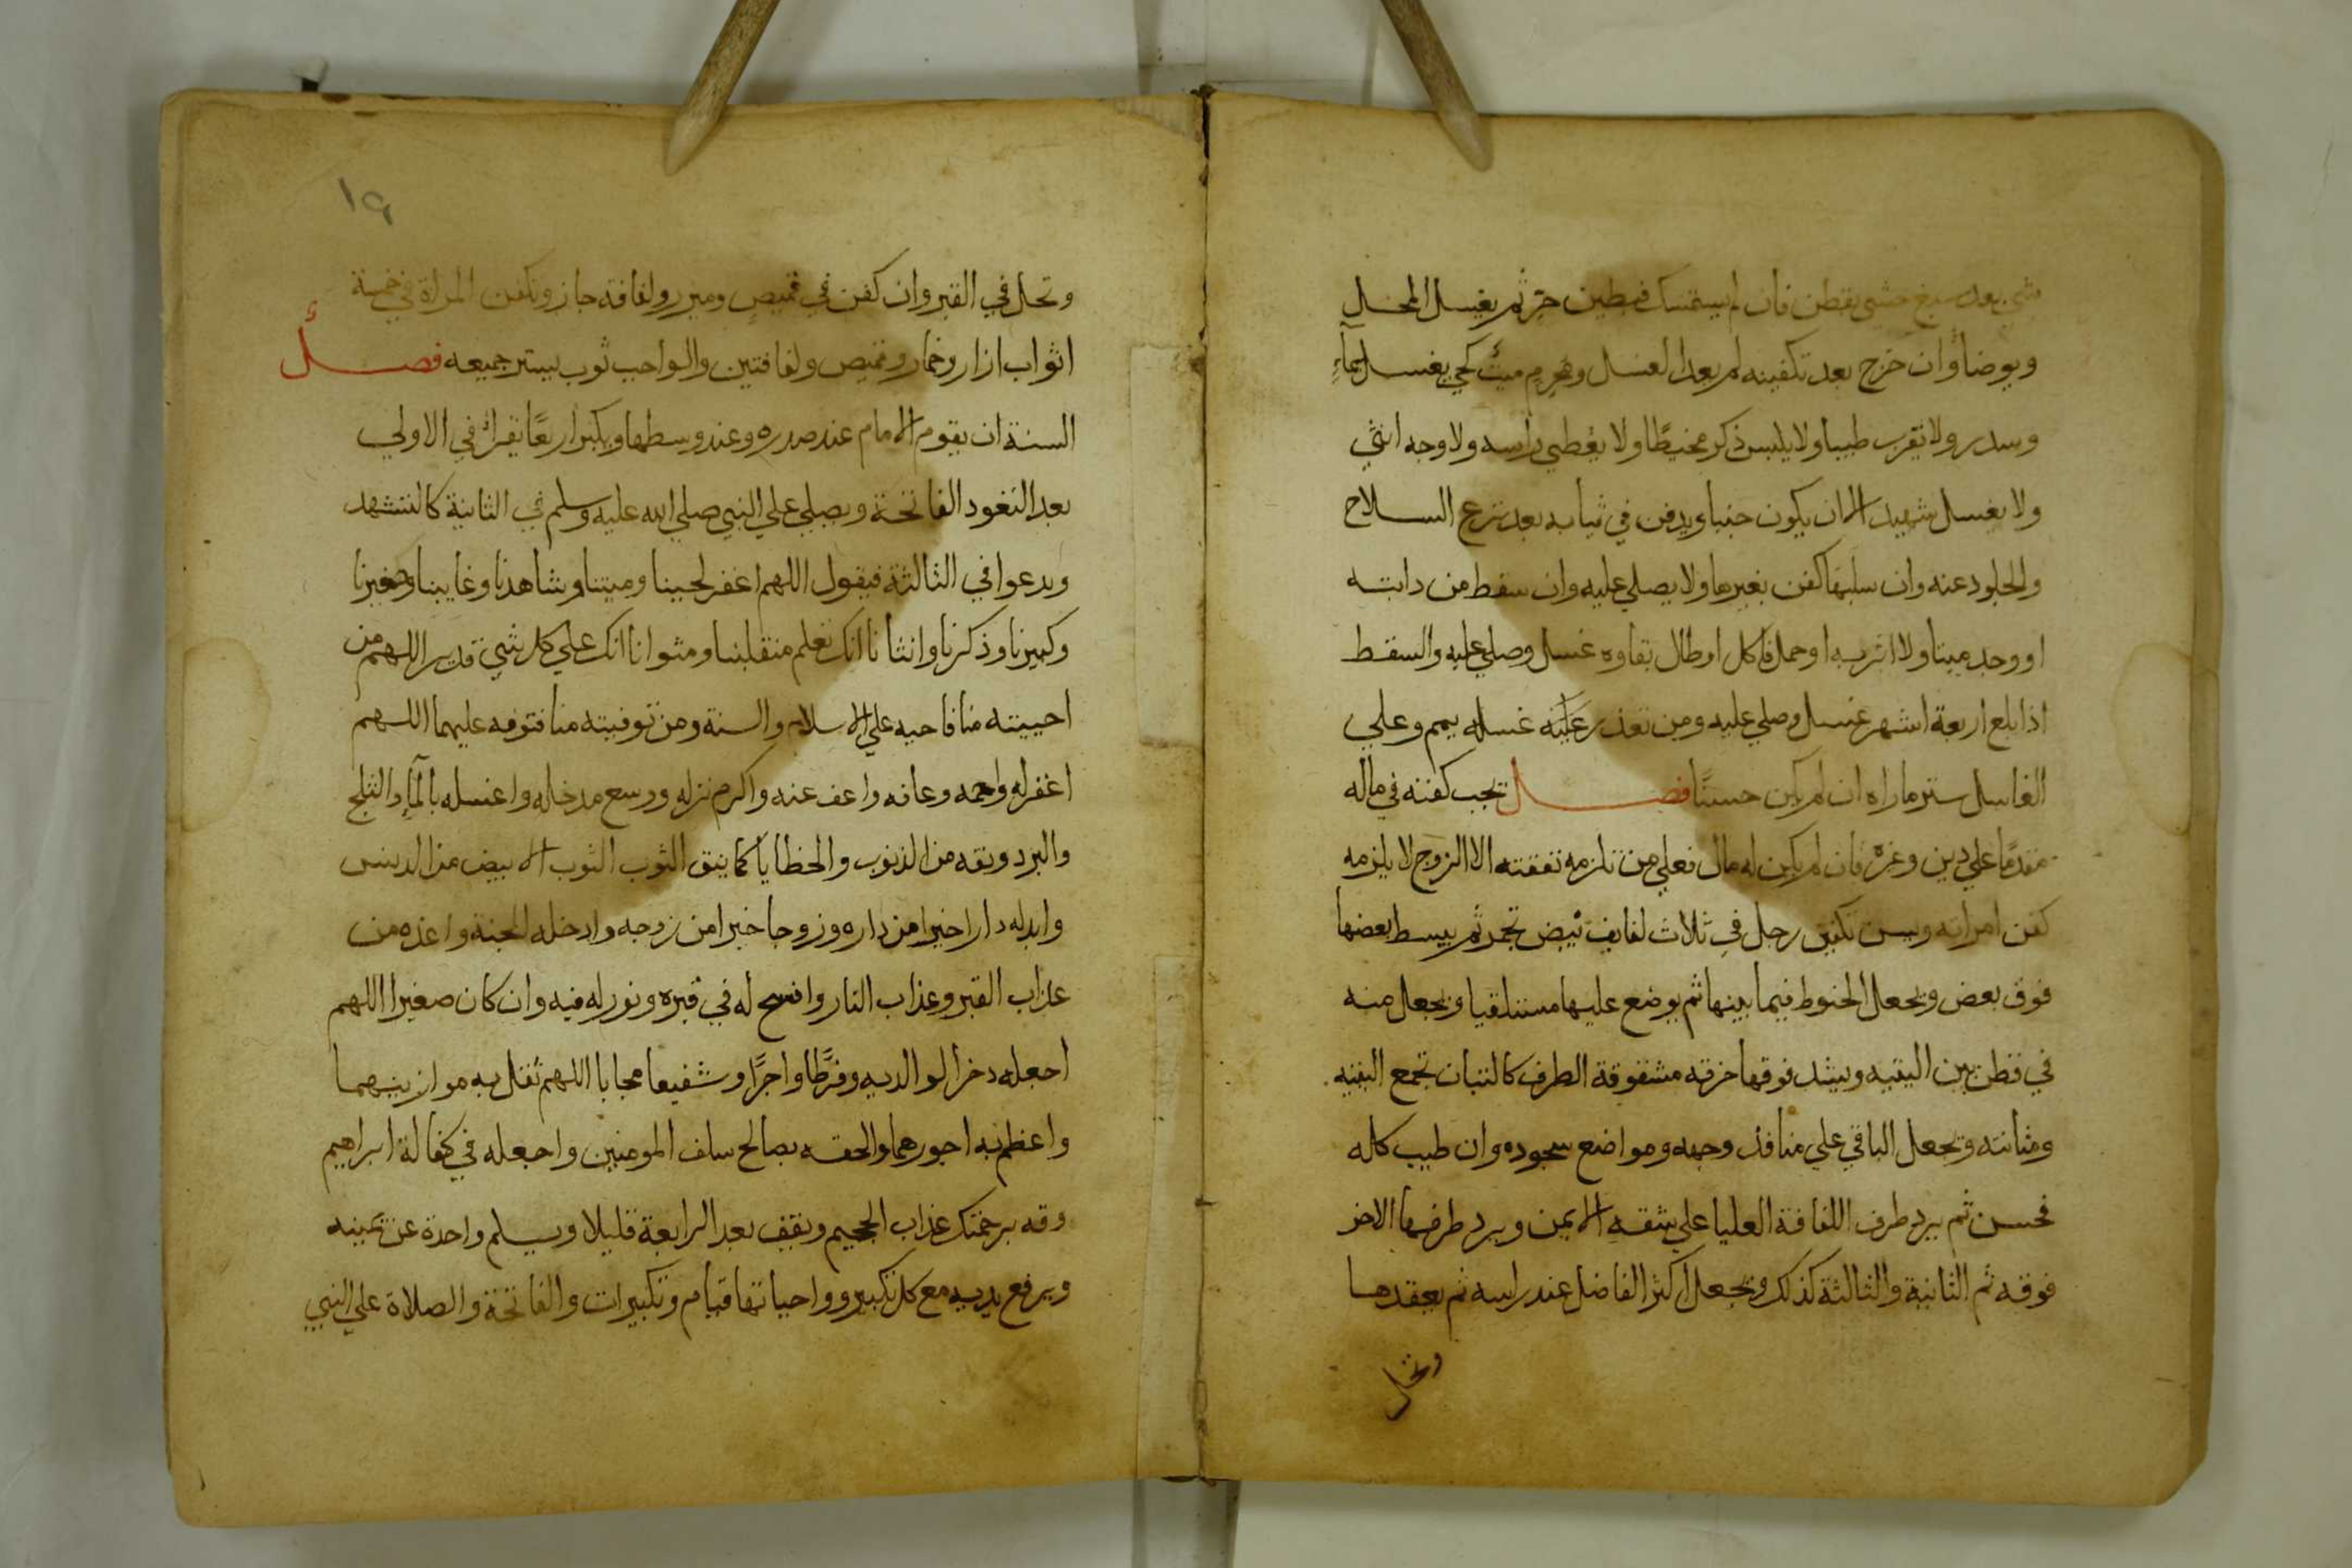 شي بعد سبع حشي بقطن فان لم يستمسك فبطين حر ثم يغسل المحل
ويوضا وان خرج بعد تكفينه لم يعد الغسل ومحرم ميت كحي يغسل بماء
وسدر ولا تقرب طيبا ولا يلبس ذكر مخيطا ولا يغطي راسه ولا وجه انثي
ولا يغسل شهيد الا ان يكون جنبا ويدفن في ثيابه بعد نزع السلاح
والجلود عنه وان سلبها كفن بغيرها ولا يصلي عليه وان سقط من دابته
او وجد ميتا ولا اثر به او حمل فاكل او طال بقاوه غسل وصلي عليه والسقط
اذا بلغ اربعة اشهر غسل وصلي عليه ومن تعذر غسله يمم وعلي
الغاسل ستر ماراه ان لم يكن حسنا فصل تجب كفنه في ماله
مقدما علي دين وغره فان لم يكن له مال فعلي من تلزمه نفقته الا الزوج لا يلزمه
كفن امراته ويسن تكفين رجل في ثلاث لفايف بيض تجمر ثم يبسط بعضها
فوق بعض ويجعل الحنوط فيما بينها ثم يوضع عليها مستلقيا ويجعل منه
في قطن بين اليتيه ويشد فوقها خرقه مشقوقة الطرف كالتبان تجمع اليتيه
ومثانته وتجعل الباقي علي منافذ وجهه ومواضع سجوده وان طيب كله
فحسن ثم يرد طرف اللفافة العليا علي شقه الايمن ويرد طرفها الاخر
فوقه ثم الثانية والثالثة كذلك ويجعل اكثر الفاضل عند راسه ثم يعقدها
وتحل
١٩
وتحل في القبر وان كفن في قميص وميزر ولفافه جاز وتكفن المراة في خمسة
اثواب ازار وخمار وقميص ولفافتين والواجب ثوب يستر جميعه فصل
السنة ان يقوم الامام عند صدره وعند وسطها ويكبر اربعا تقرا في الاولي
بعد التعود الفاتحة ويصلي علي النبي صلي الله عليه وسلم في الثانية كالتشهد
ويدعوا في الثالثة فيقول اللهم اغفر لحينا وميتنا وشاهدنا وغايبنا وصغيرنا
وكبيرنا وذكرنا وانثانا انك تعلم منقلبنا ومثوانا انك علي كل شي قدير اللهم من
احييته منا فاحيه علي الاسلام والسنة ومن توفيته منا فتوفه عليهما اللهم
اغفر له وارحمه وعافه واعف عنه واكرم نزله ووسع مدخله واغسله بالماء والثلج
والبرد ونقه من الذنوب والخطايا كما ينق الثوب الثوب الابيض من الدنس
وابدله دارا خيرا من داره وزوجا خيرا من زوجه وادخله الجنة واعذه من
عذاب القبر وعذاب النار وافسح له في قبره ونور له فيه وان كان صغيرا اللهم
اجعله دخرا لوالديه وفرطا واجرا وشفيعا مجابا اللهم ثقل به موازينهما
واعظم به اجورهما والحقه بصالح سلف المومنين واجعله في كفالة ابراهيم
وقه برحمتك عذاب الجحيم ويقف بعد الرابعة قليلا ويسلم واحدة عن يمينه
ويرفع يديه مع كل تكبير وواجباتها قيام وتكبيرات والفاتحة والصلاة علي النبي